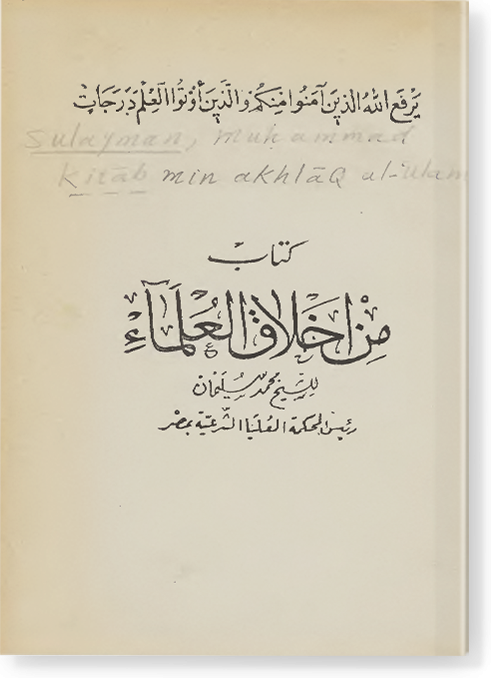 يَرْفَعِ اللهُ الذِينَ آمَنُوا مِنكُمْ وَالَّذِينَ أُوتُوا الْعِلْمَ دَرَجَاتٍ
Sulayman, Muhammad
kitāb min akhlāQ al-'ulam
كتاب
مِنْ أَخْلَاقِ الْعُلَمَاءِ
للشيخ محمد سليمان
رئيس المحكمة العليا الشرعية بمصر